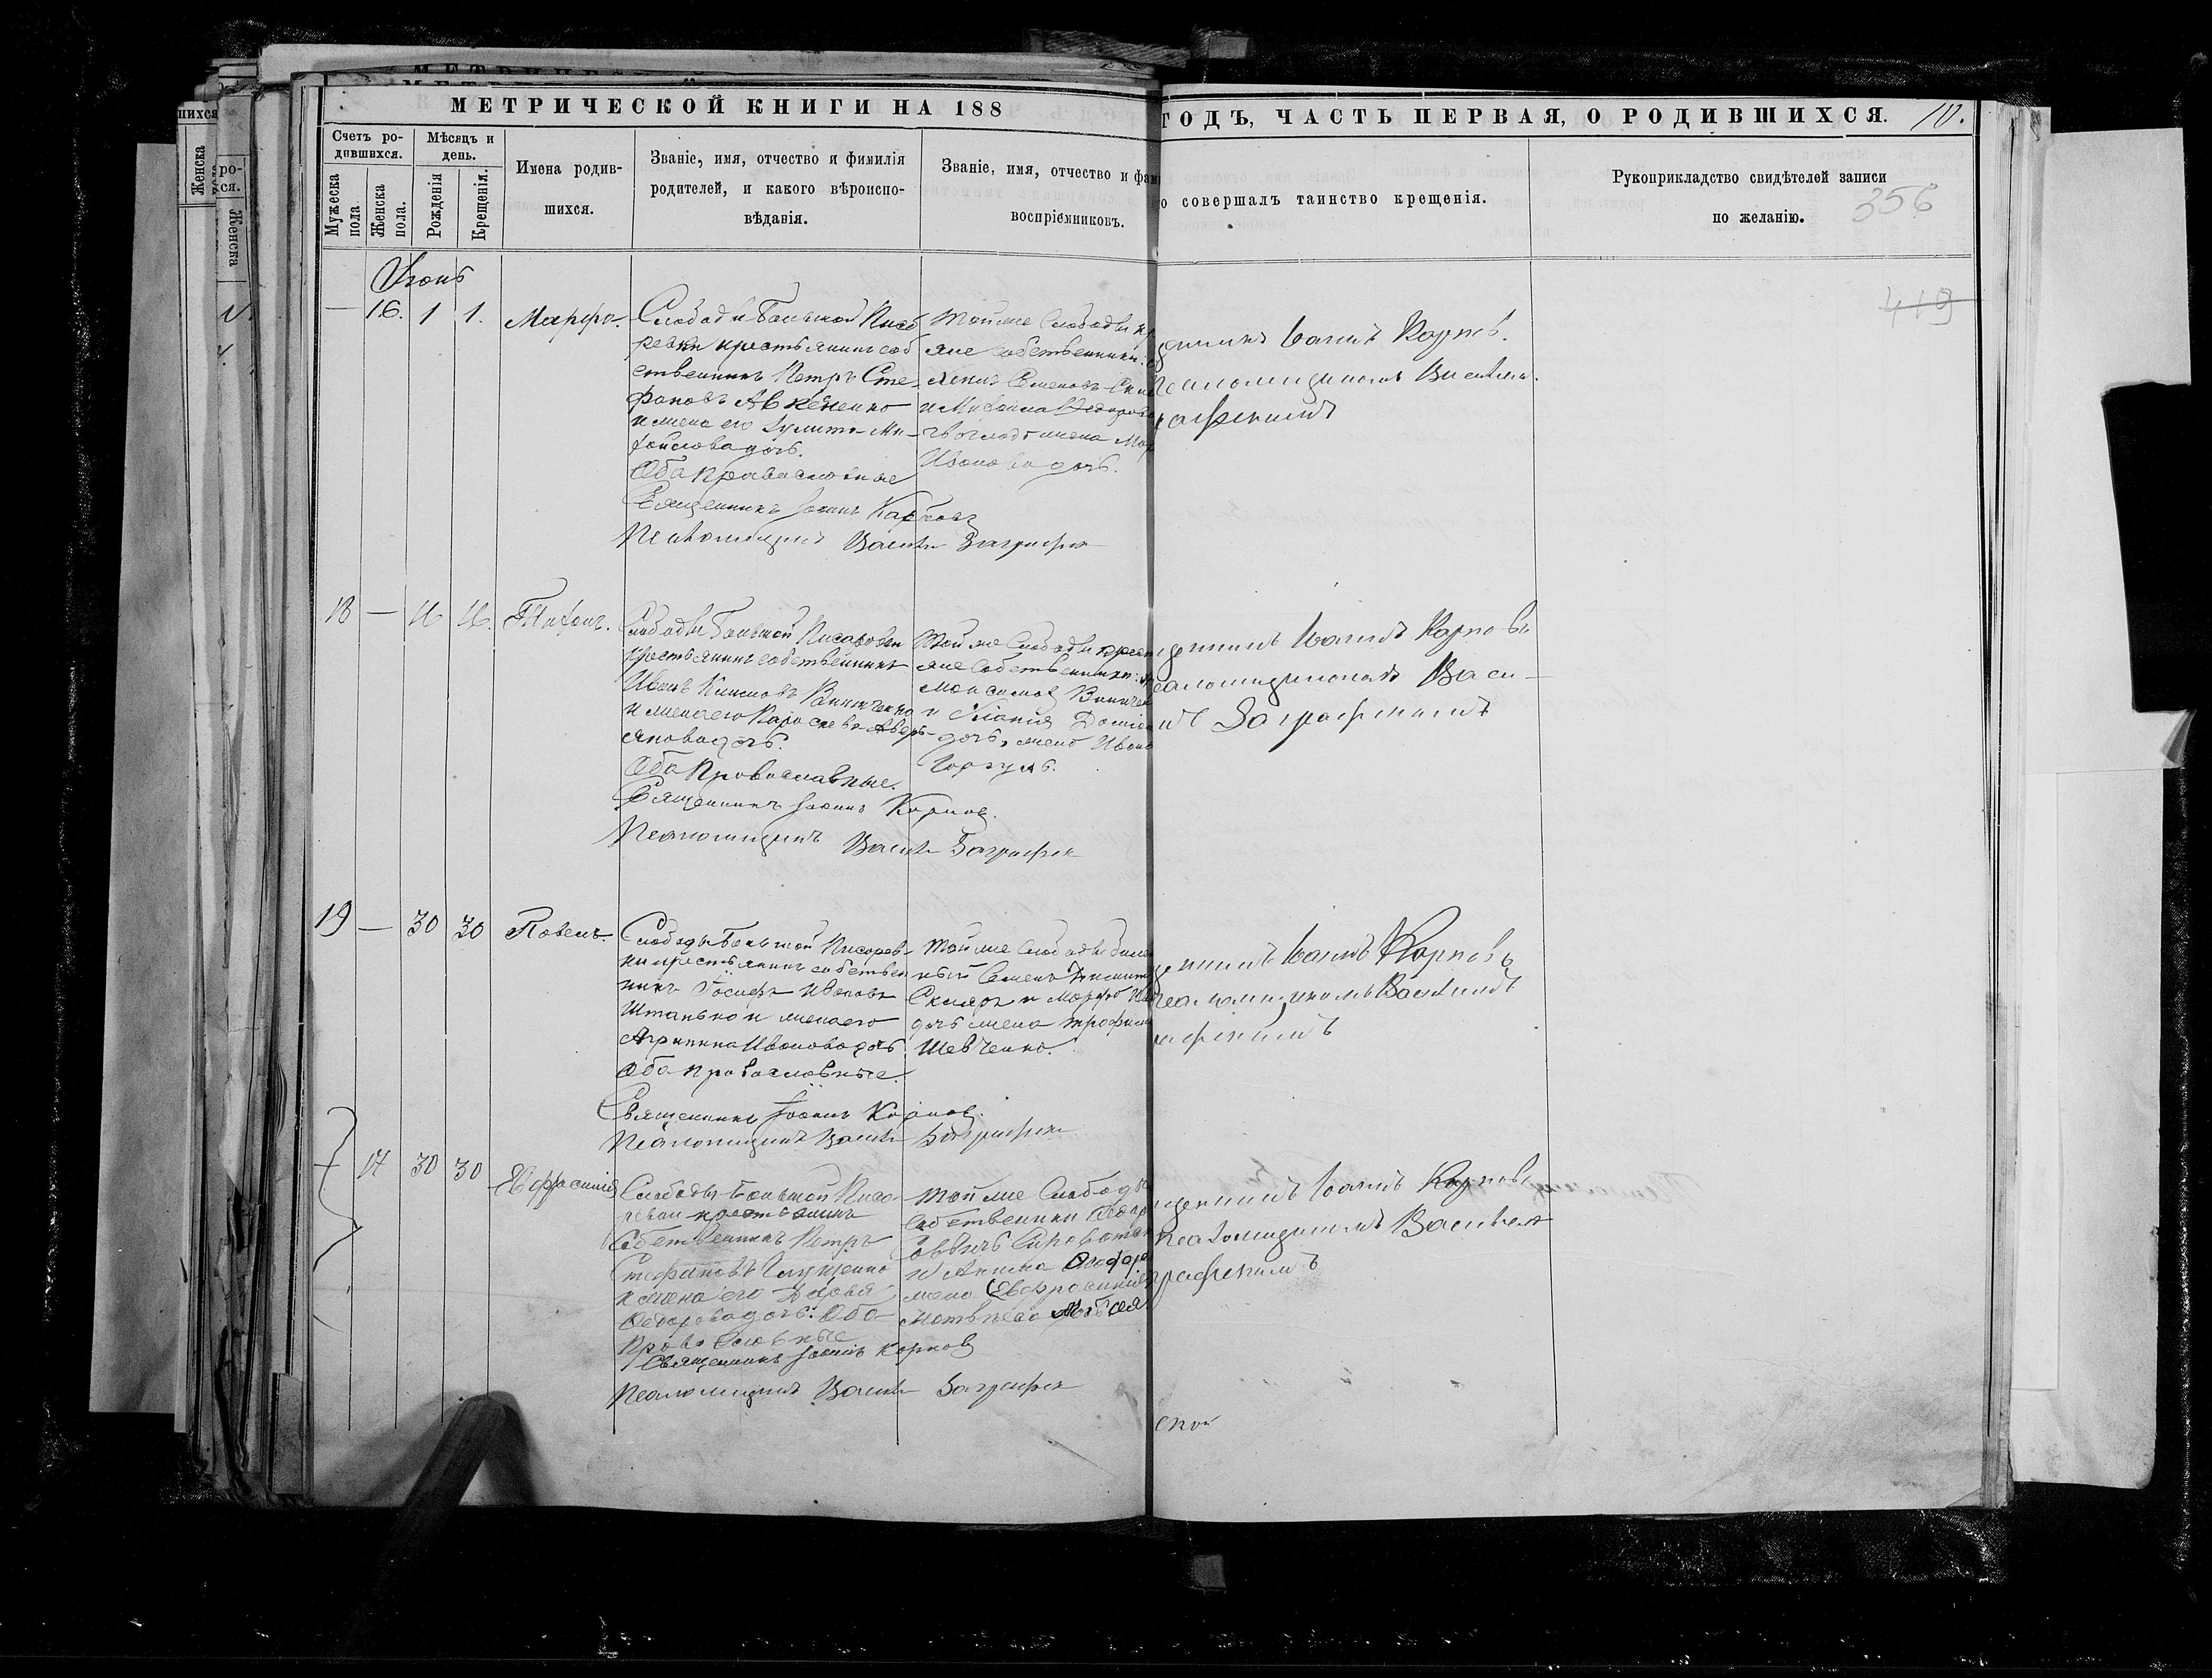 МЕТРИЧЕСКОЙ КНИГИ НА 188
ГОДЪ, ЧАСТЬ ПЕРВАЯ, О РОДИВШИХСЯ. 10.
Счетъ ро-
дившихся.
Мужеска
пола
Женска
пола.
Мѣсяцъ и
день.
Рожденія
Крещенія.
Имена родив-
шихся.
Званіе, имя, отчество и фимилія
родителей, и какого вѣроиспо-
вѣданія.
Званіе, имя, отчество и фам
воспріемниковъ.
о совершалъ таинство крещенія.
Рукоприкладство свидѣтелей записи
по желанію.
356
419
Іюнь
— 16. 1 1. Марфа.
Слободы Большой Писа
ревки крестьянинъ соб
ственникъ Петръ Сте-
фановъ
и жена его Іулита Ми-
хайлова дочь.
Оба православные
Священникъ Іоаннъ Карповъ
Псаломщикъ Васил Заграфск
Той же Слободы кр
яне собственники:
Семеновъ
и Михаила Ѳедорова
жена Мар
Иванова дочь.
щенникъ Іоаннъ Карповъ.
Псаломщикомъ Василіем.
рафскимъ
18 — 16 16. Тихонъ.
Слободы Большой Писаревки
крестьянинъ собственникъ
Иванъ Климовъ Винниченко
и жена его Параскева Аверь-
янова дочь.
Оба Православные.
Священникъ Іоаннъ Карповъ.
Псаломщикъ Васил Заграфск
Той же Слободы крест
яне собственники:
Винничен
и Даміан
дочь, жена Ивана
щенникъ Іоаннъ Карповъ
саломщикомъ Васи-
мъ Заграфскимъ
19 — 30 30 Павелъ.
Слободы Большой Писарев-
ки крестьянинъ собствен
никъ Іосифъ Ивановъ
Штанько и жена его
Агрипина Иванова дочь
Оба православные.
Священникъ Іоаннъ Карповъ.
Псаломщикъ Васил Заграфск
Той же Слободы билет
ный Семенъ Димит
Скляръ и Марфа Ива
дочь жена Трофима
Шевченко.
щенникъ Іоаннъ Карповъ
Псаломщикомъ Василіемъ
рафскимъ
17 30 30 Евфросинія
Слободы Большой Писа
ревки крестьянинъ
Собственникъ Петръ
Стефановъ Глущенко
и жена его
Ѳедорова дочь. Оба
Православные
Священникъ Іоаннъ Карповъ
Псаломщикъ Васил Заграфск
Той же Слободы
Собственники Ѳедор
Саввичъ Сироватк
и Акима
жена Евфросинія
Матвѣева
щенникъ Іоаннъ Карповъ
Псаломщикомъ Василіемъ
графскимъ
ской